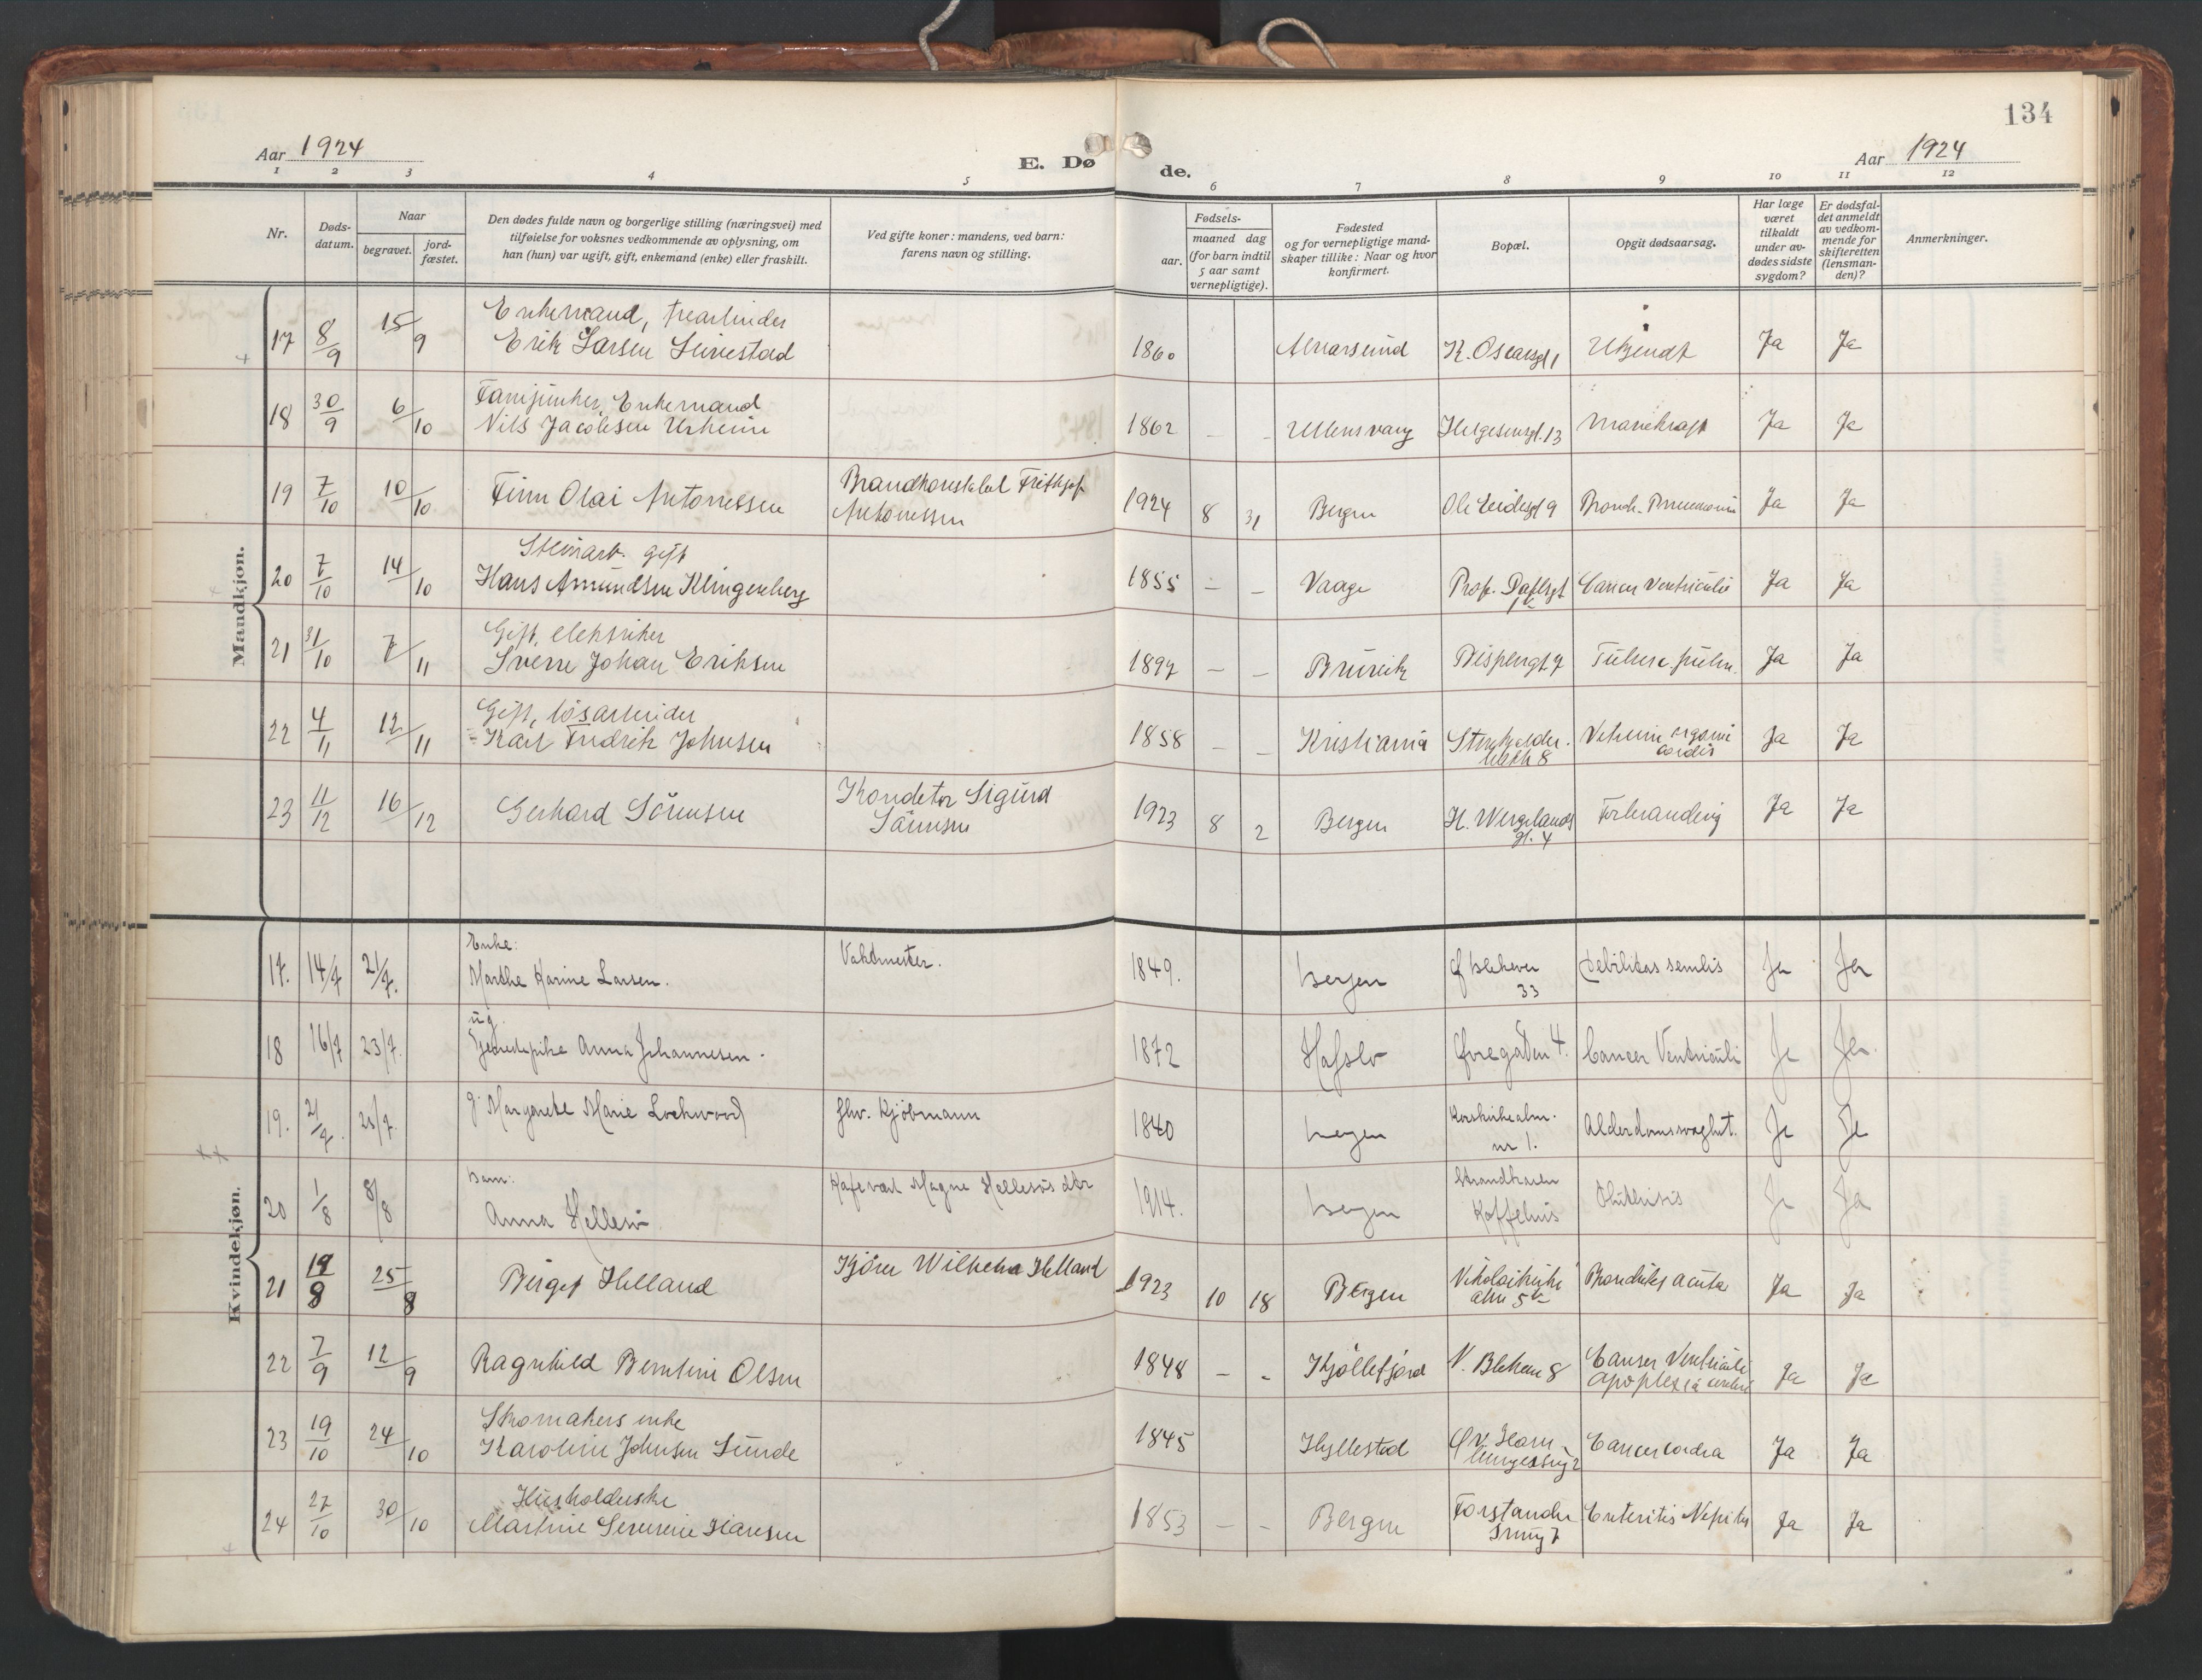 134
Aar 1924
E. Dø
de.
Aar 1924
1 2 3 4 5 6 7 8 9 10 11 12
Nr.
Døds-
datum.
Naar
begravet.
jord-
fæstet.
Den dødes fulde navn og borgerlige stilling (næringsvei) med
tilføielse for voksnes vedkommende av oplysning, om
han (hun) var ugift, gift, enkemand (enke) eller fraskilt.
Ved gifte koner: mandens, ved barn:
farens navn og stilling.
Fødsels-
aar.
maaned dag
(for barn indtil
5 aar samt
vernepligtige).
Fødested
og for vernepligtige mand-
skaper tillike: Naar og hvor
konfirmert.
Bopæl.
Opgit dødsaarsag.
Har læge
været
tilkaldt
under av-
dødes sidste
sygdom?
Er dødsfal-
det anmeldt
av vedkom-
mende for
skifteretten
(lensman-
den)?
Anmerkninger.
Mandkjøn.
Enkemand,
17 8/9 15/9 Erik Larsen 1860 K. Oscarsgt 1 Ukjendt Ja Ja
Fanejunker, Enkemand
18 30/9 6/10 Nils Jacobsen 1862 - - Ullensvang Helgesensgt. 13 Ja Ja
19 7/10 10/10 Finn Olai Antonessen Brandkonstabel Frithjof
Antonessen 1924 8 31 Bergen 9 Ja Ja
Stenarb. gift
20 7/10 14/10 Hans Amundsen Klingenberg 1855 - - Vaage Prof. Dahlsgt Cancer Ventriculi Ja Ja
Gift, elektriker
21 31/10 7/11 Sverre Johan Eriksen 1897 - - Ja Ja
Gift, løsarbeider
22 4/11 12/11 Karl Fredrik Johnsen 1858 - - Kristiania 8 cordis Ja Ja
23 11/12 16/12 Gerhard Sörensen Konditor Sigurd
Sörensen 1923 8 2 Bergen H. Wergelands
gt. 4 Forbrænding Ja Ja
Kvindekjøn.
Enke.
17. 14/7 21/7. Marthe Karine Larsen. Vaktmester. 1849. Bergen Ø Blekevei
33 Debilitas senilis Ja Ja
ug.
18 16/7 23/7. Tjenestepike Anna Johannesen. 1872 Hafslo Øvregaten 4. Cancer Ventriculi Ja Ja
19. 21/7. 25/7. g. Margarete Marie Lockwood fhv. Kjöbmann 1840 Bergen Korskirkealm.
nr 1. Alderdomssvaghet. Ja Ja
Barn.
20 1/8 8/8 Anna Hellesö Kafevert Magne Hellesös dtr 1914. Bergen Strandkaien
Kaffehus Ja Ja
21 19/8 25/8 Birgit Helland Wilhelm Helland 1923 10 18 Bergen Nikolaikirke
alm 5 Bronchites acuta Ja Ja
22 7/9 12/9 Ragnhild Berntine Olsen 1848 - - Kjöllefjord V. Blekev 8 Canser Ventriculi
apoplexia cerebri Ja Ja
Skomakers enke
23 19/10 24/10 Karoline Johnsen Sunde 1845 Hyllestad Cancer Ja Ja
Husholderske
24 27/10 30/10 Martine Severine Hansen 1853 - - Bergen Forstander
7 Enteritis Ja Ja